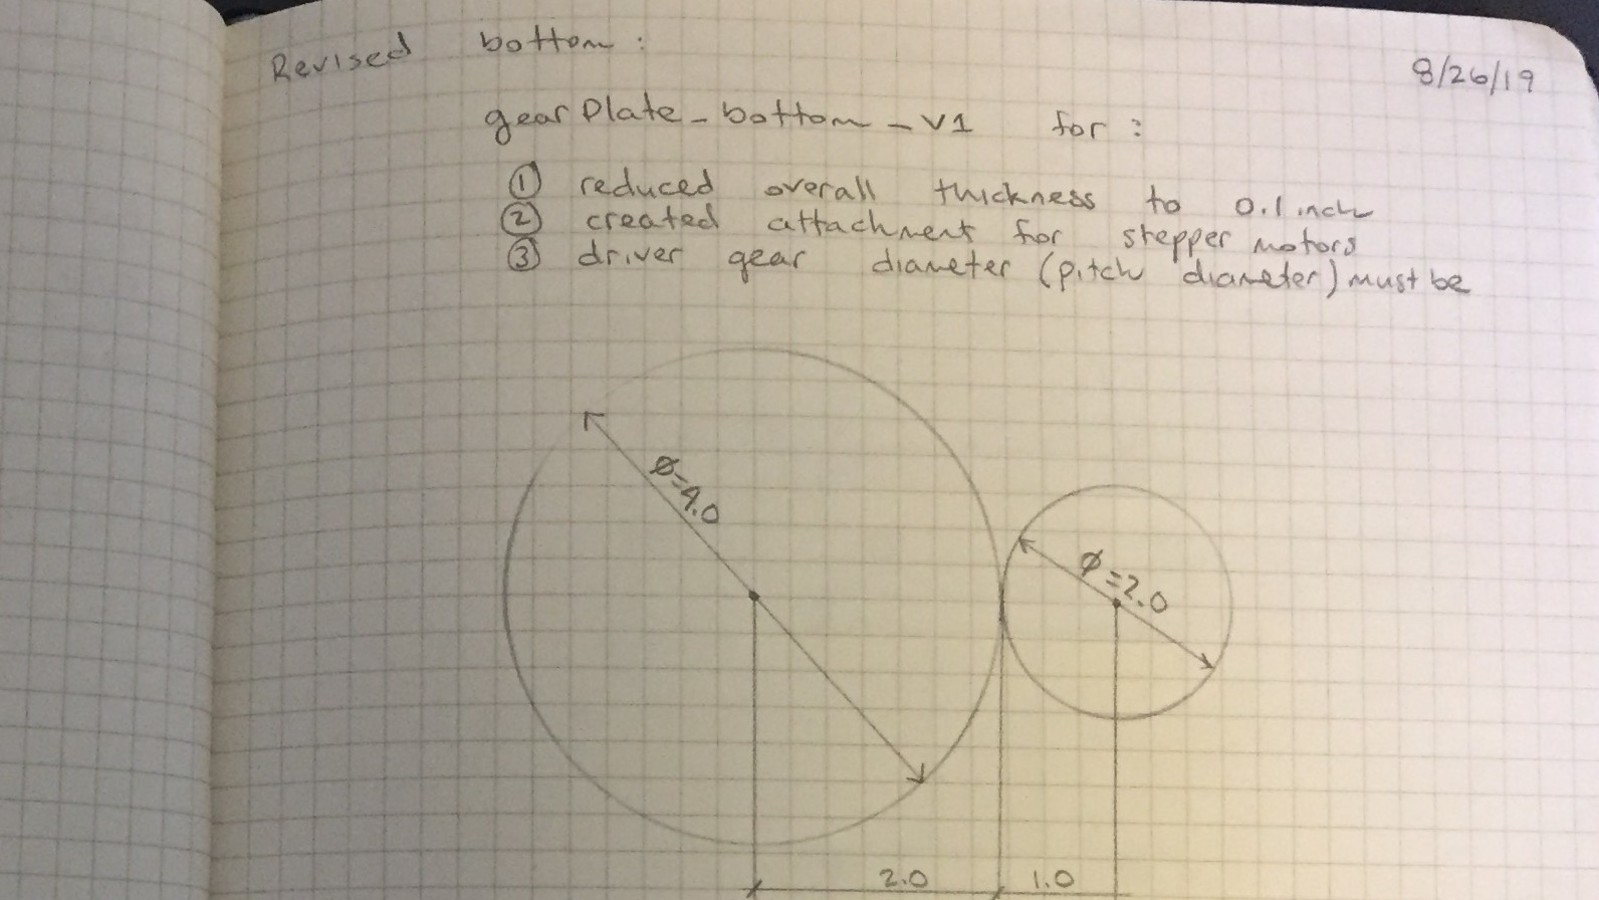 Revised bottom:
8/26/19
gearPlate_bottom_v1 for:
① reduced overall thickness to 0.1 inch
② created attachment for stepper motors
③ driver gear diameter (pitch diameter) must be
Ø=4.0
Ø=2.0
2.0
1.0